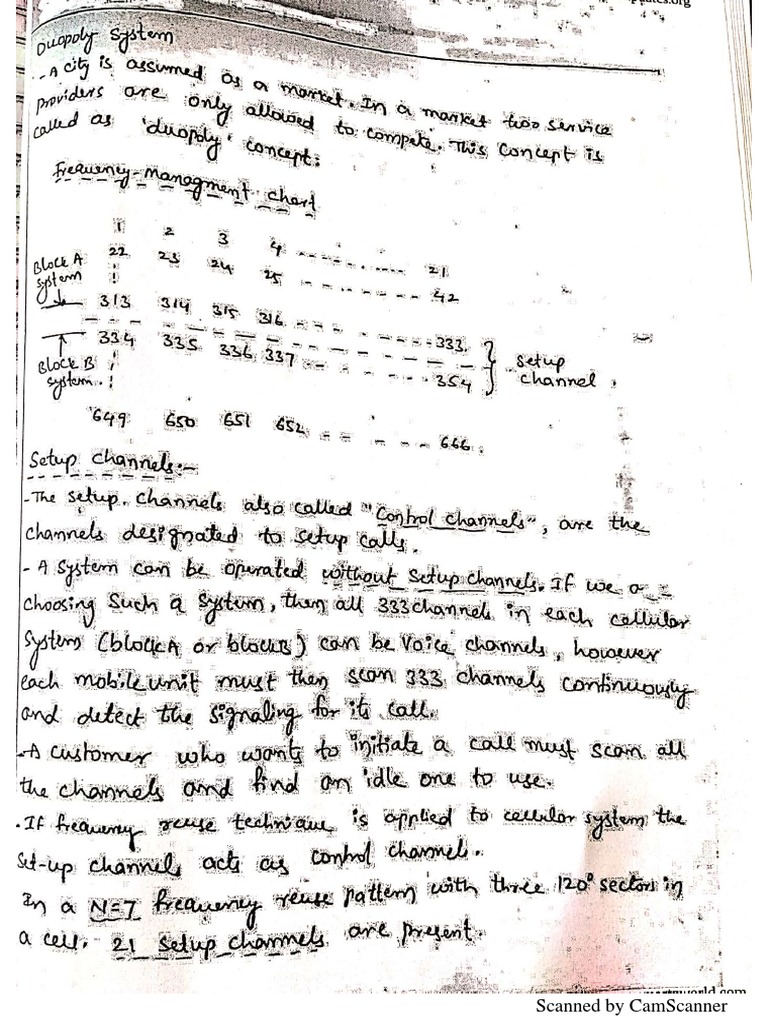 Duopoly System
- A city is assumed as a market. In a market two service
providers are only allowed to compete. This concept is
called as 'duopoly' concept.
Frequency-Managment chart
1 2 3 4 ---------- 21
Block A 22 23 24 25 --------- 42
system
313 314 315 316 --------- 333
334 335 336 337 --------- 354 setup
channel.
Block B
system.
649 650 651 652 --------- 666.
Setup channels:-
- The setup channels also called "Control channels", are the
channels designated to setup calls.
- A system can be operated without setup channels. If we a
choosing such a system, then all 333 channels in each cellular
system (block A or block B) can be voice channels, however
each mobile unit must then scan 333 channels continuously
and detect the signaling for its call.
- A customer who wants to initiate a call must scan all
the channels and find an idle one to use.
. If frequency reuse technique is applied to cellular system the
set-up channels acts as control channels.
In a N=7 frequency reuse pattern with three 120° sectors in
a cell. 21 setup channels are present.
Scanned by CamScanner